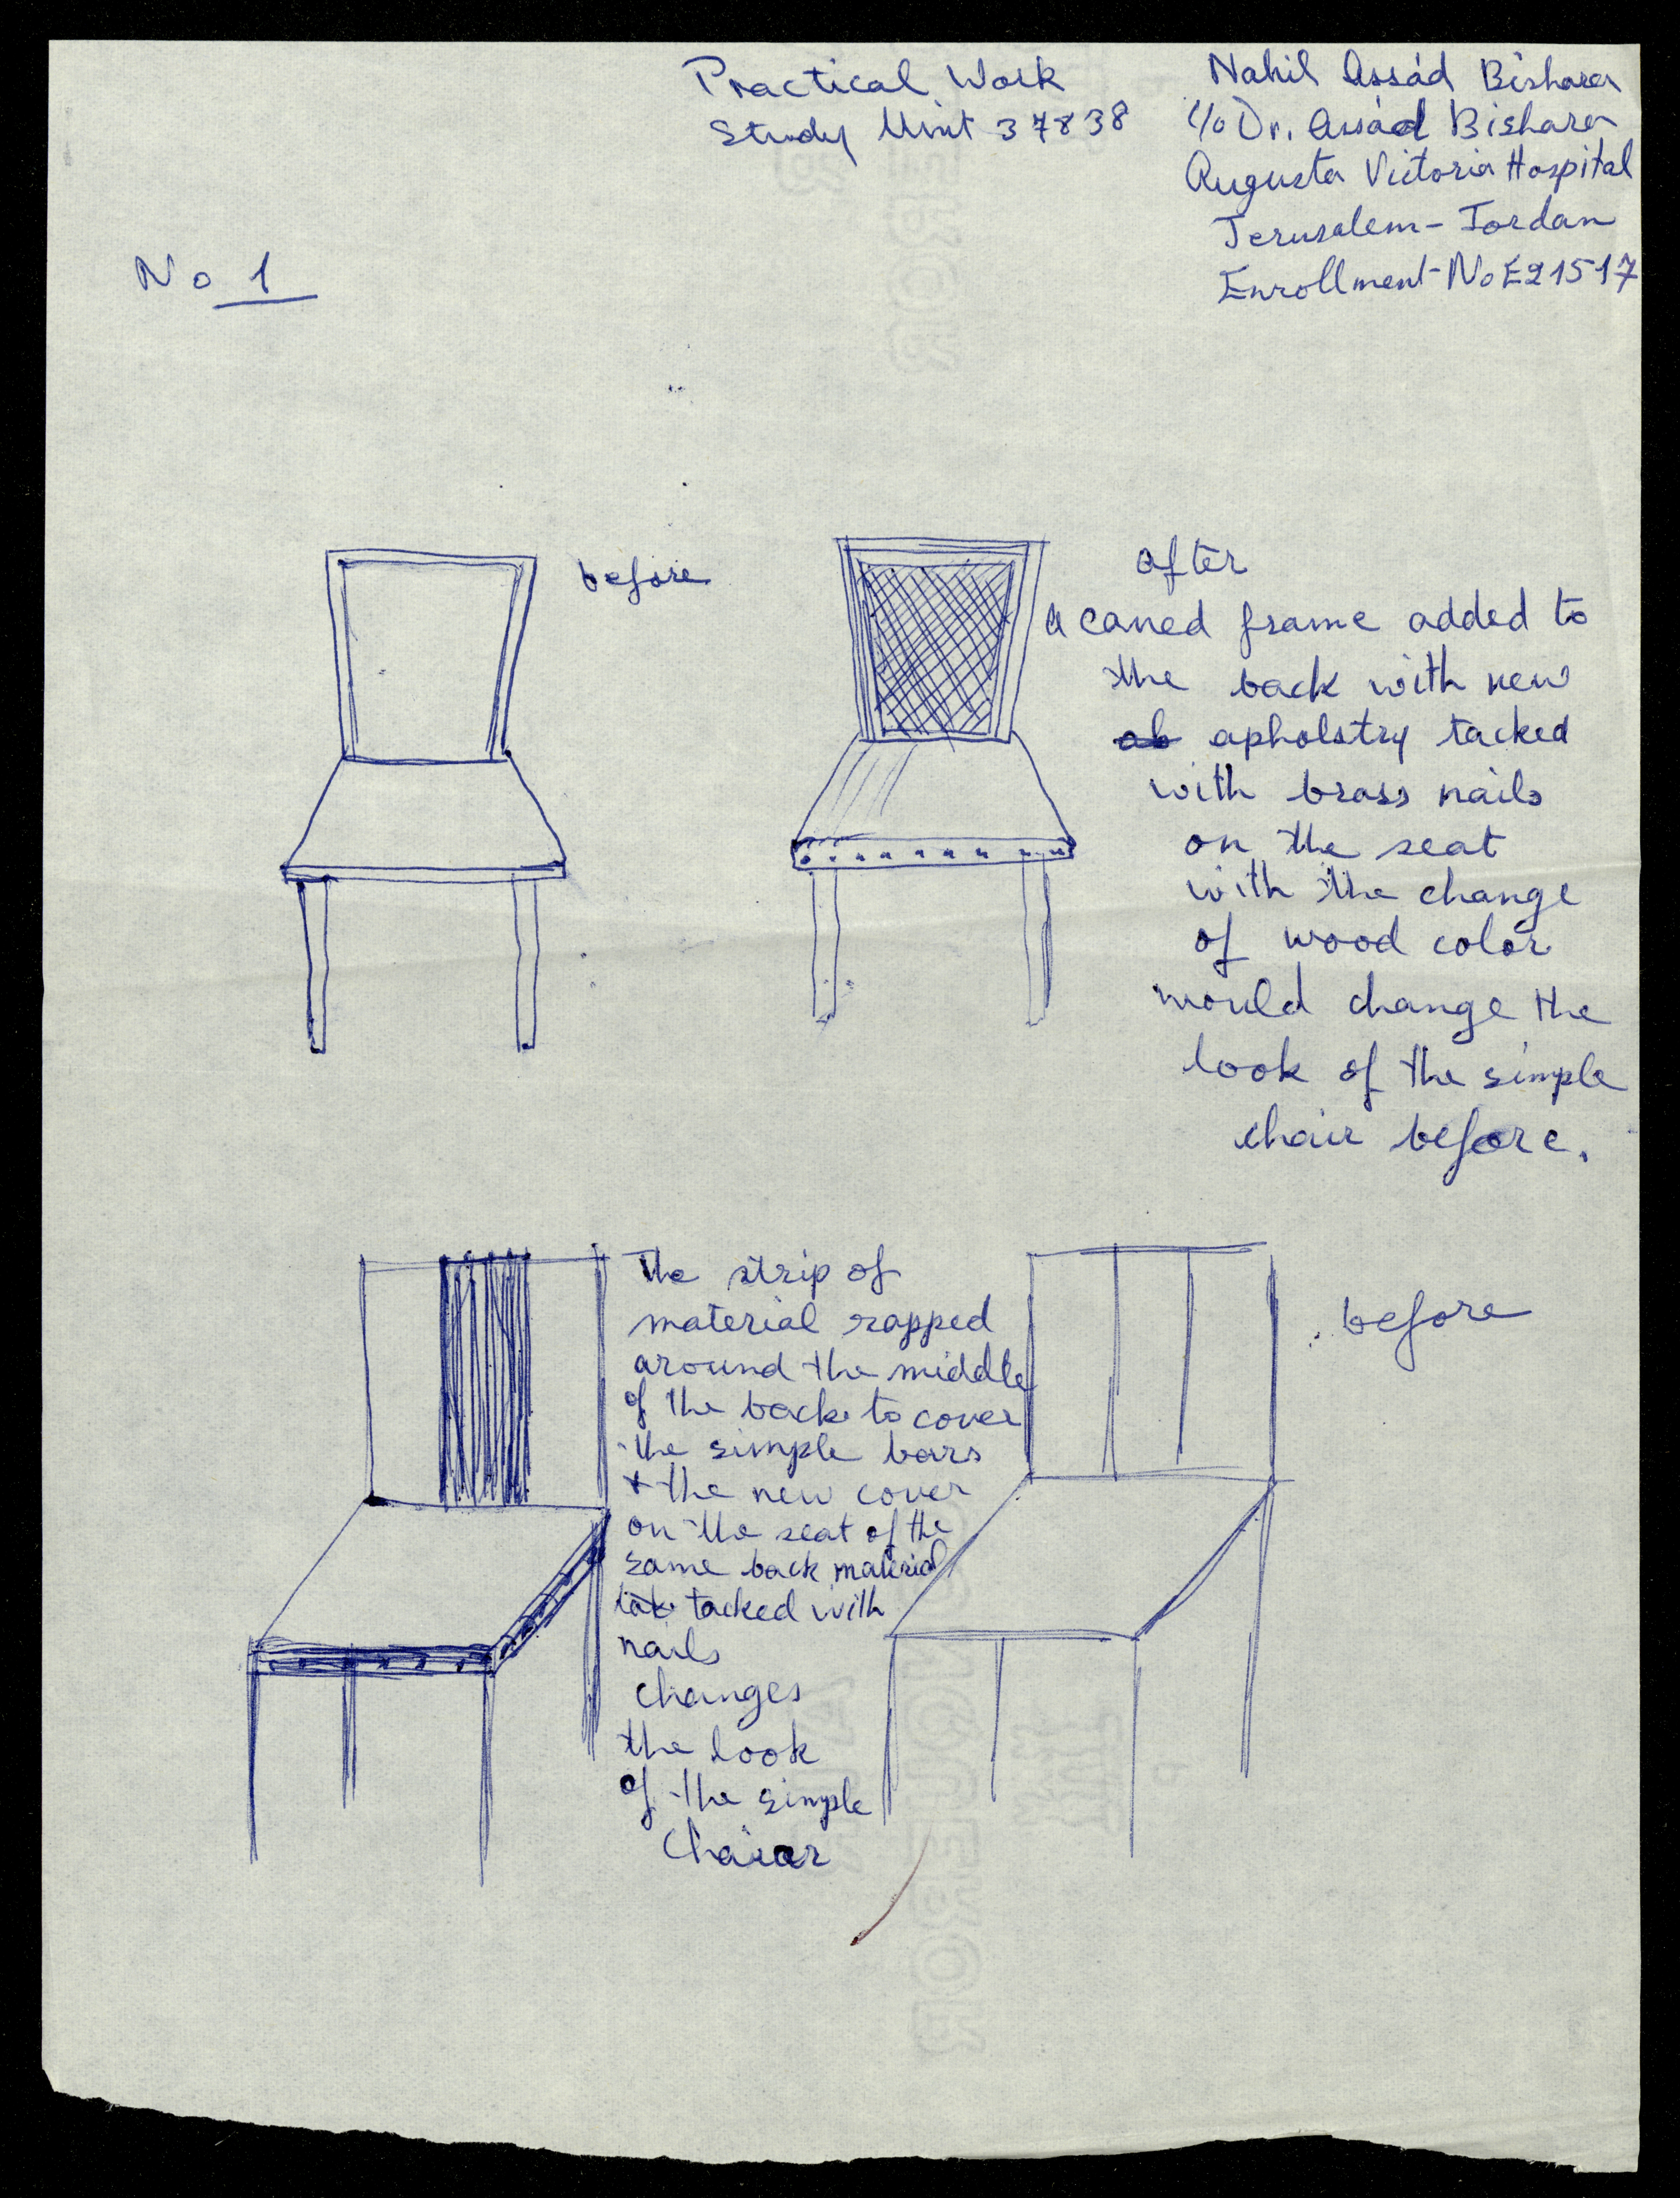 Practical Work
Study Unit 37838
Nahil Assád Bishara
c/o Dr. Assád Bishara
Augusta Victoria Hospital
Jerusalem - Jordan
Enrollment - No E21517
No 1
before
after
a caned frame added to
the back with new
apholstry tacked
with brass nails
on the seat
with the change
of wood color
would change the
look of the simple
chair before.
The strip of
material rapped
around the middle
of the back to cover
the simple bars
+ the new cover
on the seat of the
same back material
tacked with
nails
changes
the look
of the simple
Chair
before